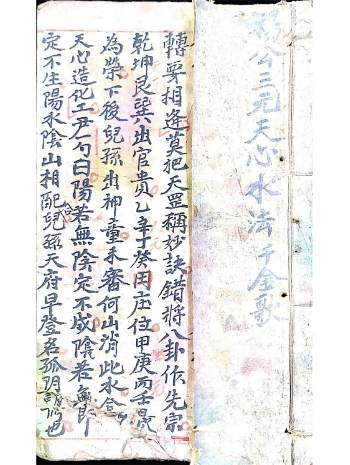 楊公三元天心水法千金歌
轉要相逢莫把天罡稱妙訣錯將八卦作先宗
乾坤艮巽出官貴乙辛丁癸田庄位甲庚丙壬
為榮下後兒孫出神童未審何山消此水合
天心造化工句曰陽若無陰定不成陰若無
定不生陽水陰山相配合兒孫天府早登名孤阴也